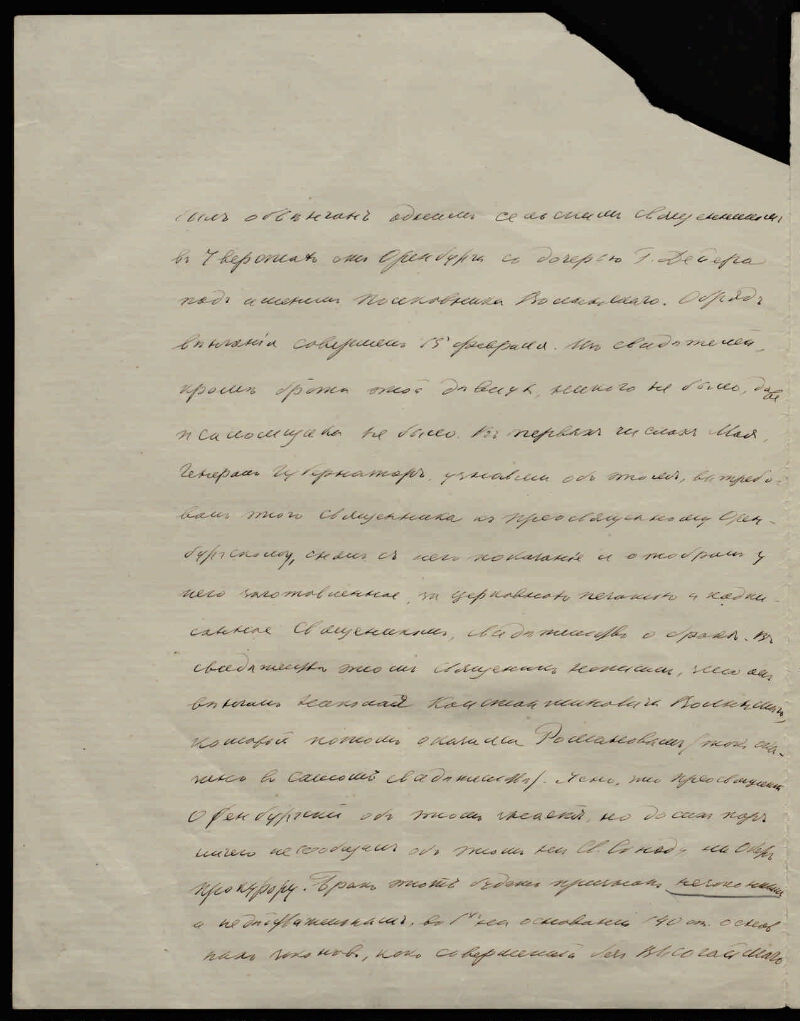 былъ обвѣнчанъ однимъ сельскимъ священникомъ
въ 7 верстахъ отъ Оренбурга съ дочерью Г. Дейера
подъ именемъ Полковника Волынскаго. Обрядъ
вѣнчанія совершенъ 15 февраля. Изъ свидѣтелей,
кромѣ брата этой дѣвицы, никого не было, даже
псаломщика не было. Въ первыхъ числахъ Мая,
Генералъ Губернаторъ, узнавши объ этомъ, вытребо-
валъ этого священника къ преосвященному Орен-
бургскому, снялъ съ него показаніе и отобралъ у
него заготовленное, за церковною печатью и подпи-
санное Священникомъ, свидѣтельство о бракѣ. Въ
свидѣтельствѣ этомъ священникъ написалъ, что онъ
вѣнчалъ Николая Константиновича Волынскаго,
который потомъ оказался Романовымъ /такъ ска-
зано въ самомъ свидѣтельствѣ/. Ясно, что преосвященный
Оренбургский объ этомъ знаетъ, но до сихъ поръ
ничего не сообщилъ объ этомъ ни Св. Синоду, ни Оберъ
прокурору. Бракъ этотъ долженъ признать незаконнымъ
и недѣйствительнымъ, во 1хъ на основаніи 140 ст. основ
ныхъ законовъ, какъ совершенный безъ Высочайшаго